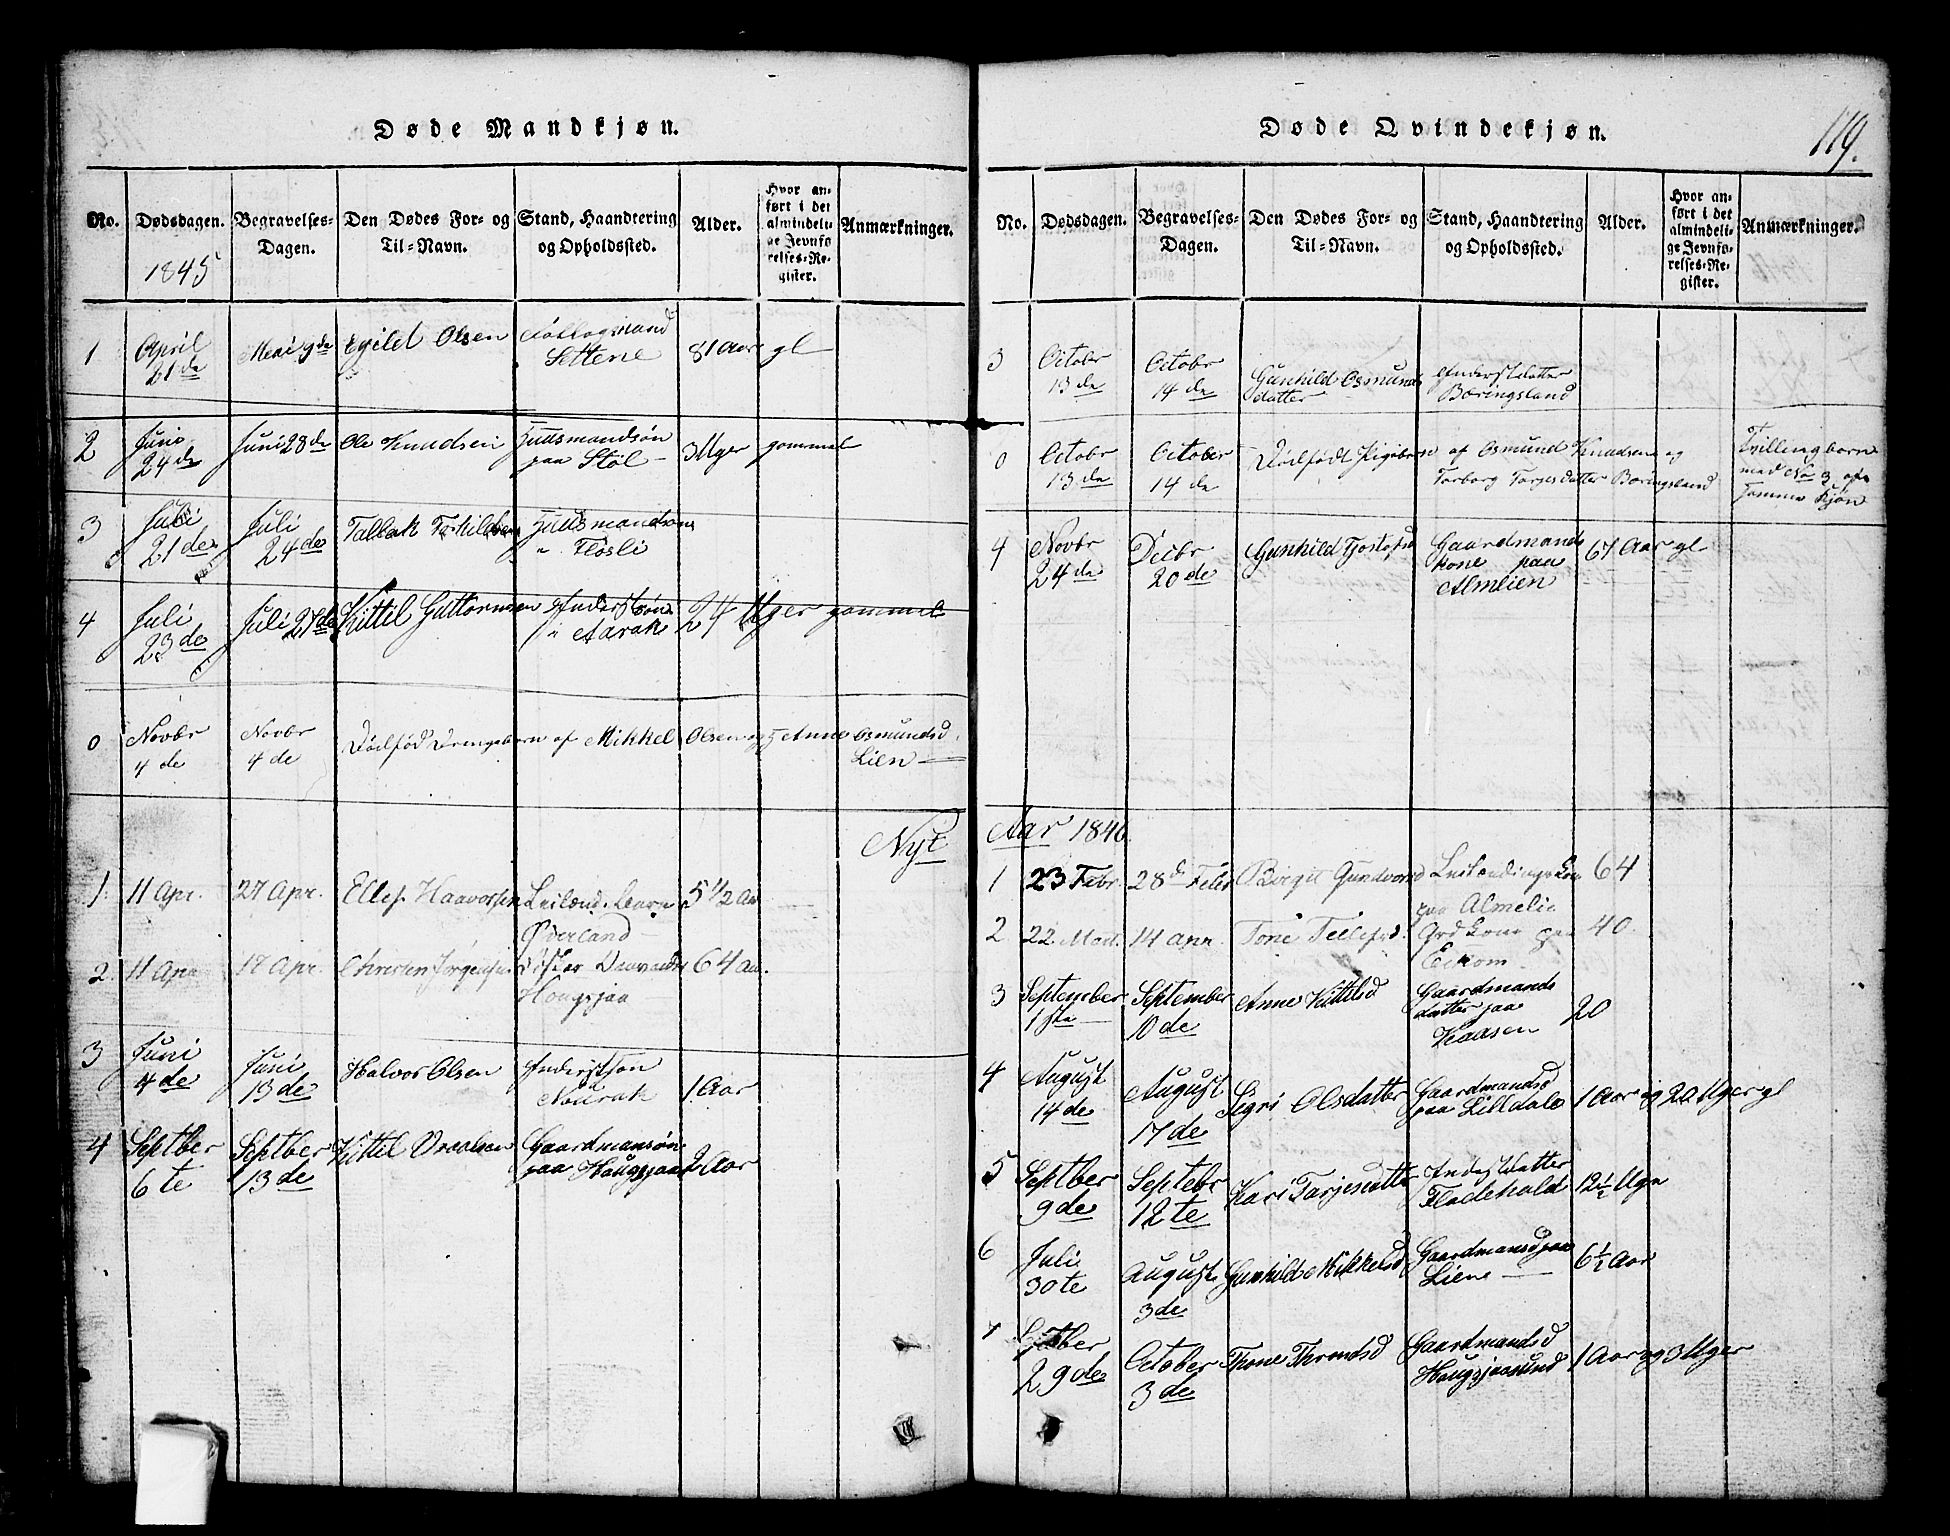 Døde Mandkjøn.
No.
Dødsdagen.
1845
Begravelses-
Dagen.
Den Dødes For- og
Til-Navn.
Stand, Haandtering
og Opholdssted.
Alder.
Hvor an-
ført i det
almindeli-
ge Jevnfø-
relses-Re-
gister.
Anmærkninger.
1 April 21de Mai 9de Eyild Olsen Follogsmand Settene 81 Aar gl
2 Juni 24de Juni 28de Ole Knudsen Huusmandsøn paa Støl 3 Uger gommel
3 Juli 21de Juli 24de Tallak Torkildsen Huusmandsøn Flosli
4 Juli 23de Juli 27de Kittil Guttormsen Inderstsøn Aarak 24 Uger gommel
0 Novbr 4de Novbr 4de Dödföd Drengebarn af Mikkel Olsen og Anne Osmundsd. Lien
Nyt
1. 11 Apr. 27 Apr. Ellef Haavorsen Leilænd. barn Øverland 5 1/2 Aar
2. 11 Apr 17 Apr. Christen Jørgensen Haugsjaa 64 Aar.
3 Juni 4de Juni 13de Halvor Olsen Inderstsøn Naurak 1 Aar
4 Septber 6te Septber 13de Kittil Draalsen Gaardmansøn paa Haugsjaa 2 Aar
Døde Qvindekjøn.
119.
No.
Dødsdagen.
Begravelses-
Dagen.
Den Dødes For- og
Til-Navn.
Stand, Haandtering
og Opholdssted.
Alder.
Hvor an-
ført i det
almindeli-
ge Jevnfø-
relses-Re-
gister.
Anmærkninger.
3 Octobr 13de Octobr 14de Gunhild Osmunds datter Inderstdatter Børingsland
0 Octobr 13de October 14de Dödfödt Pigebarn af Osmund Knudsen og Torborg Torjesdatter Børingsland Tvillingbarn med No 3 af samme Kjøn
4 Novbr 24de Decbr 20de Gunhild Tjostofsd Gaardmands kone paa Almlien 67 Aar gl
Aar 1846.
1 23 Febr. 28d Febr Birgit Gundvorsd Leilændingskone paa Almelie 64
2 22 Mart. 14 Apr. Tone Tellefsd. Grdkone paa Eikom 40
3 September 1ste September 10de Anne Kittilsd Gaardmands datter paa Kaasen 20
4 August 14de August 17de Sigri Olsdatter Gaardmandsd paa Lilldale 1 Aar og 20 Uger gl
5 Septber 9de Septebr 12te Kari Tarjesdatter Inderstdatter Fladehald 12½ Uge
6 Juli 30te August 3de Gunhild Mikkelsd Gaardmansd paa Liene 6½ Aar
7 29de October 3de Thone Throndsd Gaardmandsd Haugsjaasund 1 Aar og 3 Uger